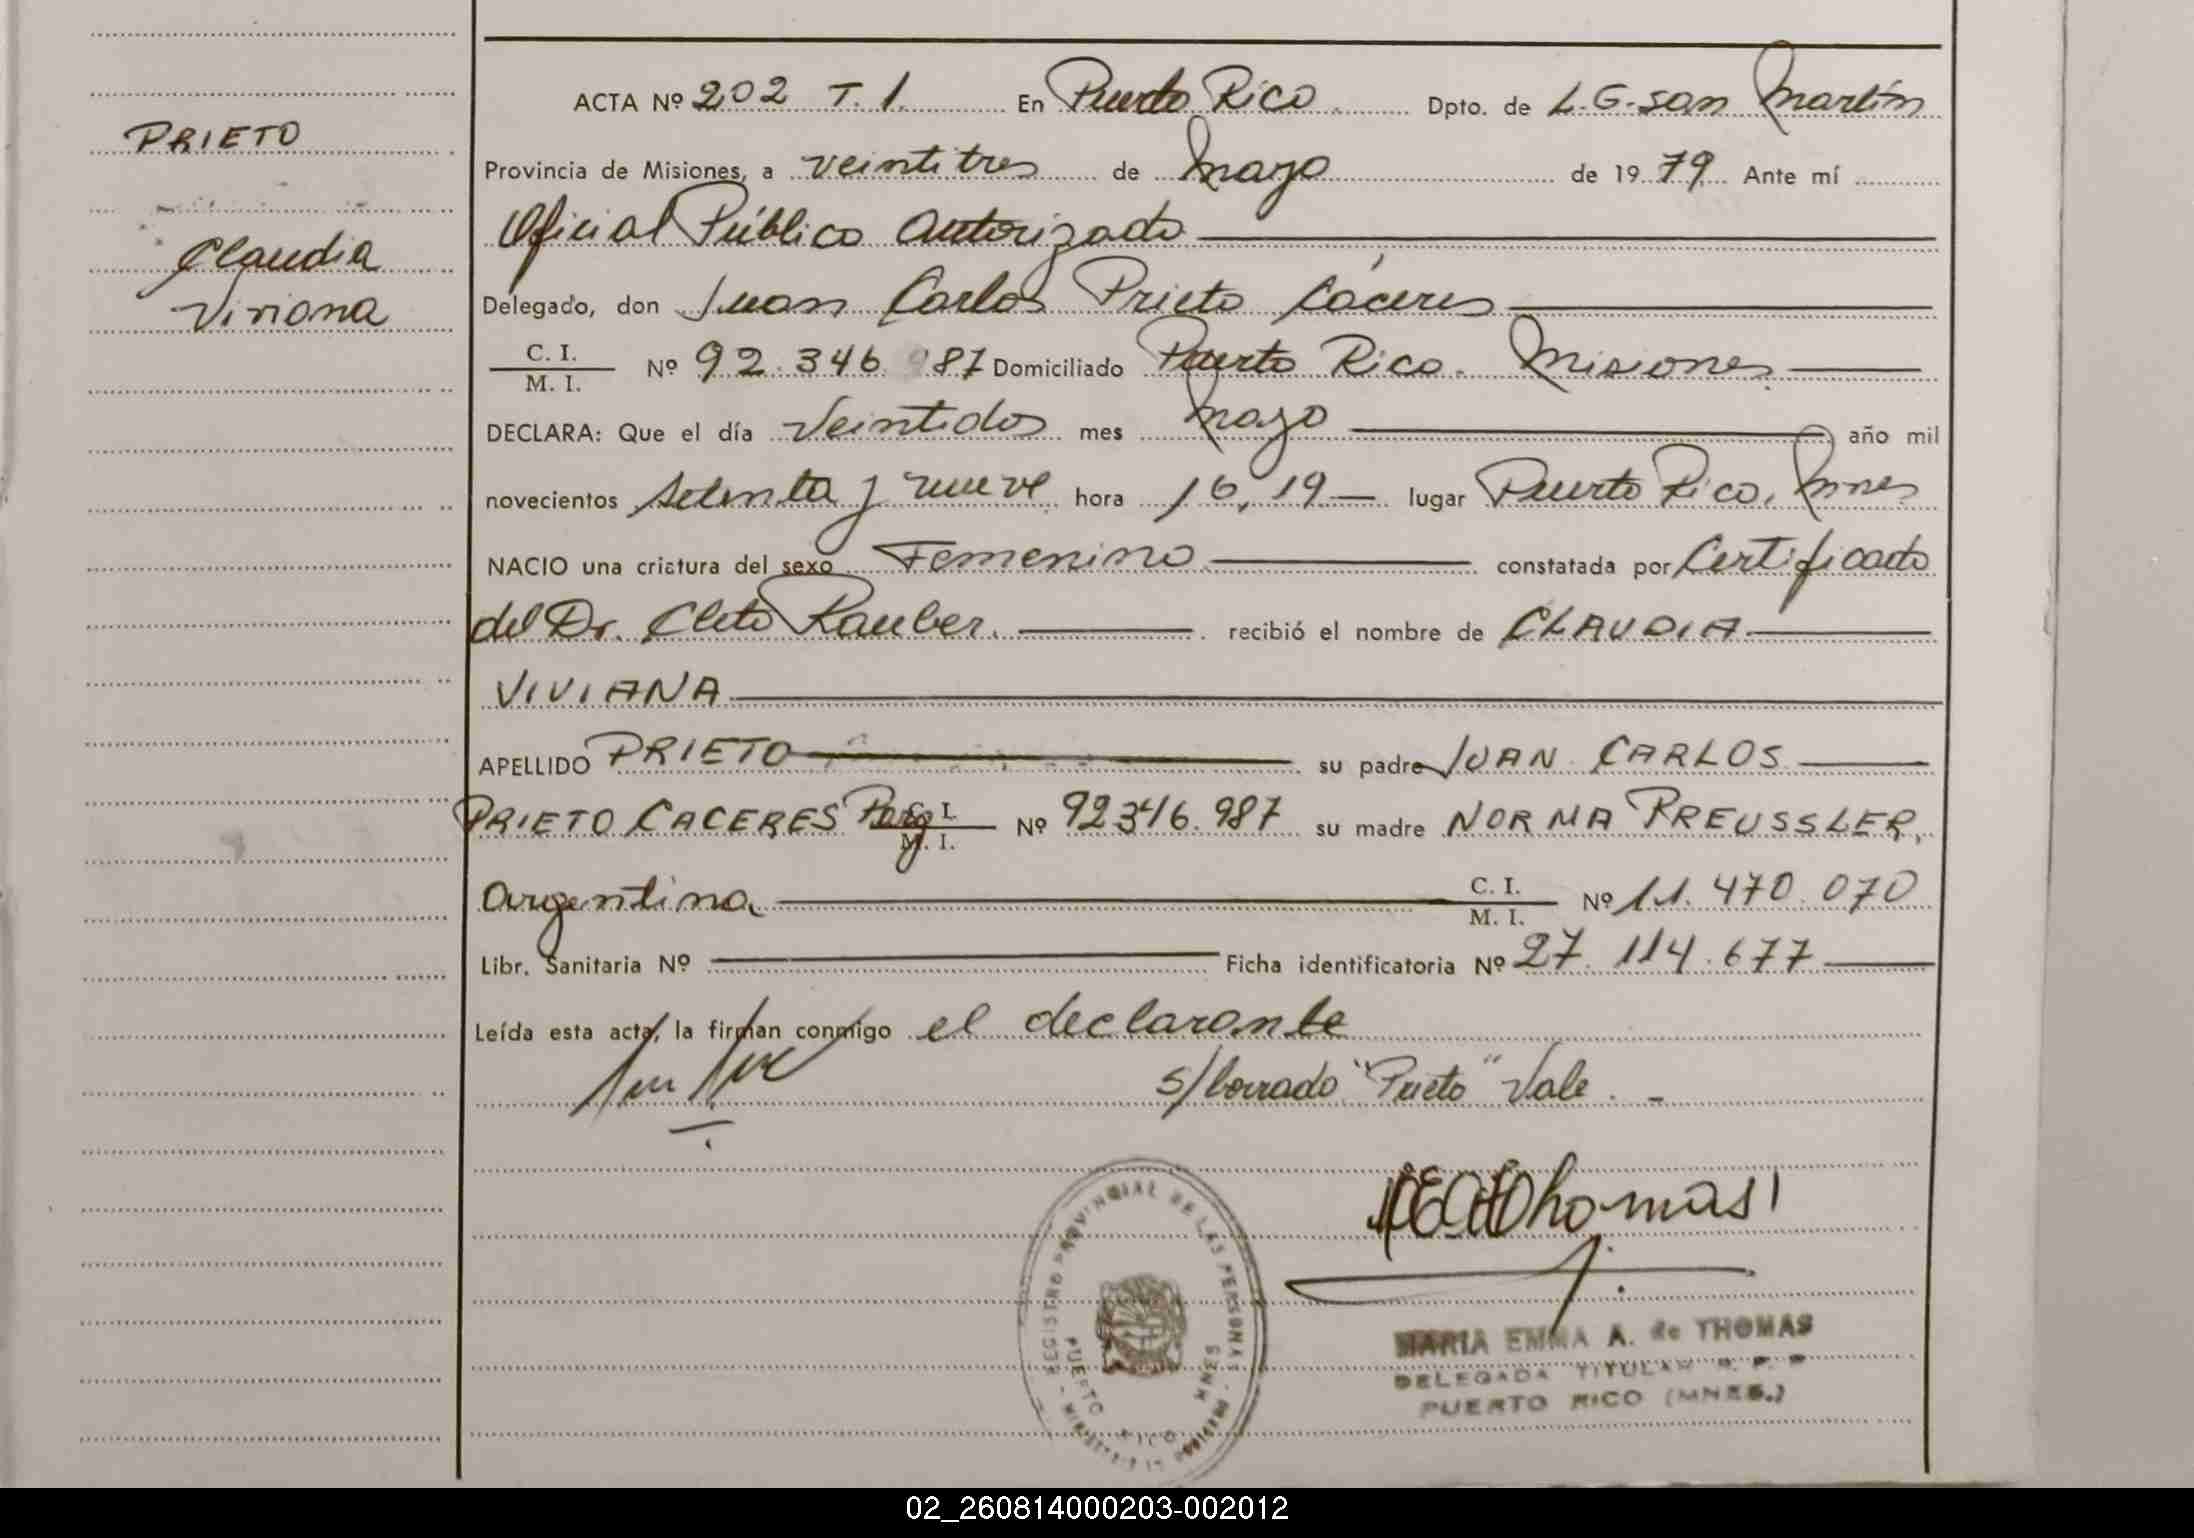 PRIETO
Claudia
Viviana
ACTA Nº 202 T. 1. En Puerto Rico Dpto. de L. G. San Martín
Provincia de Misiones, a veintitres de Mayo de 1979 Ante mí
Oficial Público Autorizado
Delegado, don Juan Carlos Prieto Cáceres
C. I.
M. I. Nº 92.346.987 Domiciliado Puerto Rico. Misiones
DECLARA: Que el día Veintidos mes Mayo año mil
novecientos setenta y nueve hora 16,19 lugar Puerto Rico, Mnes
NACIO una criatura del sexo Femenino constatada por Certificado
del Dr. Cleto Rauber. recibió el nombre de CLAUDIA
VIVIANA
APELLIDO PRIETO su padre JUAN CARLOS
PRIETO CACERES Parg C. I.
M. I. Nº 92346.987 su madre NORMA PREUSSLER,
Argentina C. I.
M. I. Nº 11.470.070
Libr. Sanitaria Nº Ficha identificatoria Nº 27.114.677
Leída esta acta, la firman conmigo el declarante
s/borrado "Prieto" Vale. -
Thomas
REGISTRO PROVINCIAL DE LAS PERSONAS
PUERTO RICO MNES
MARIA EMMA A. de THOMAS
DELEGADA TITULAR R. P. P
PUERTO RICO (MNES.)
02_260814000203-002012